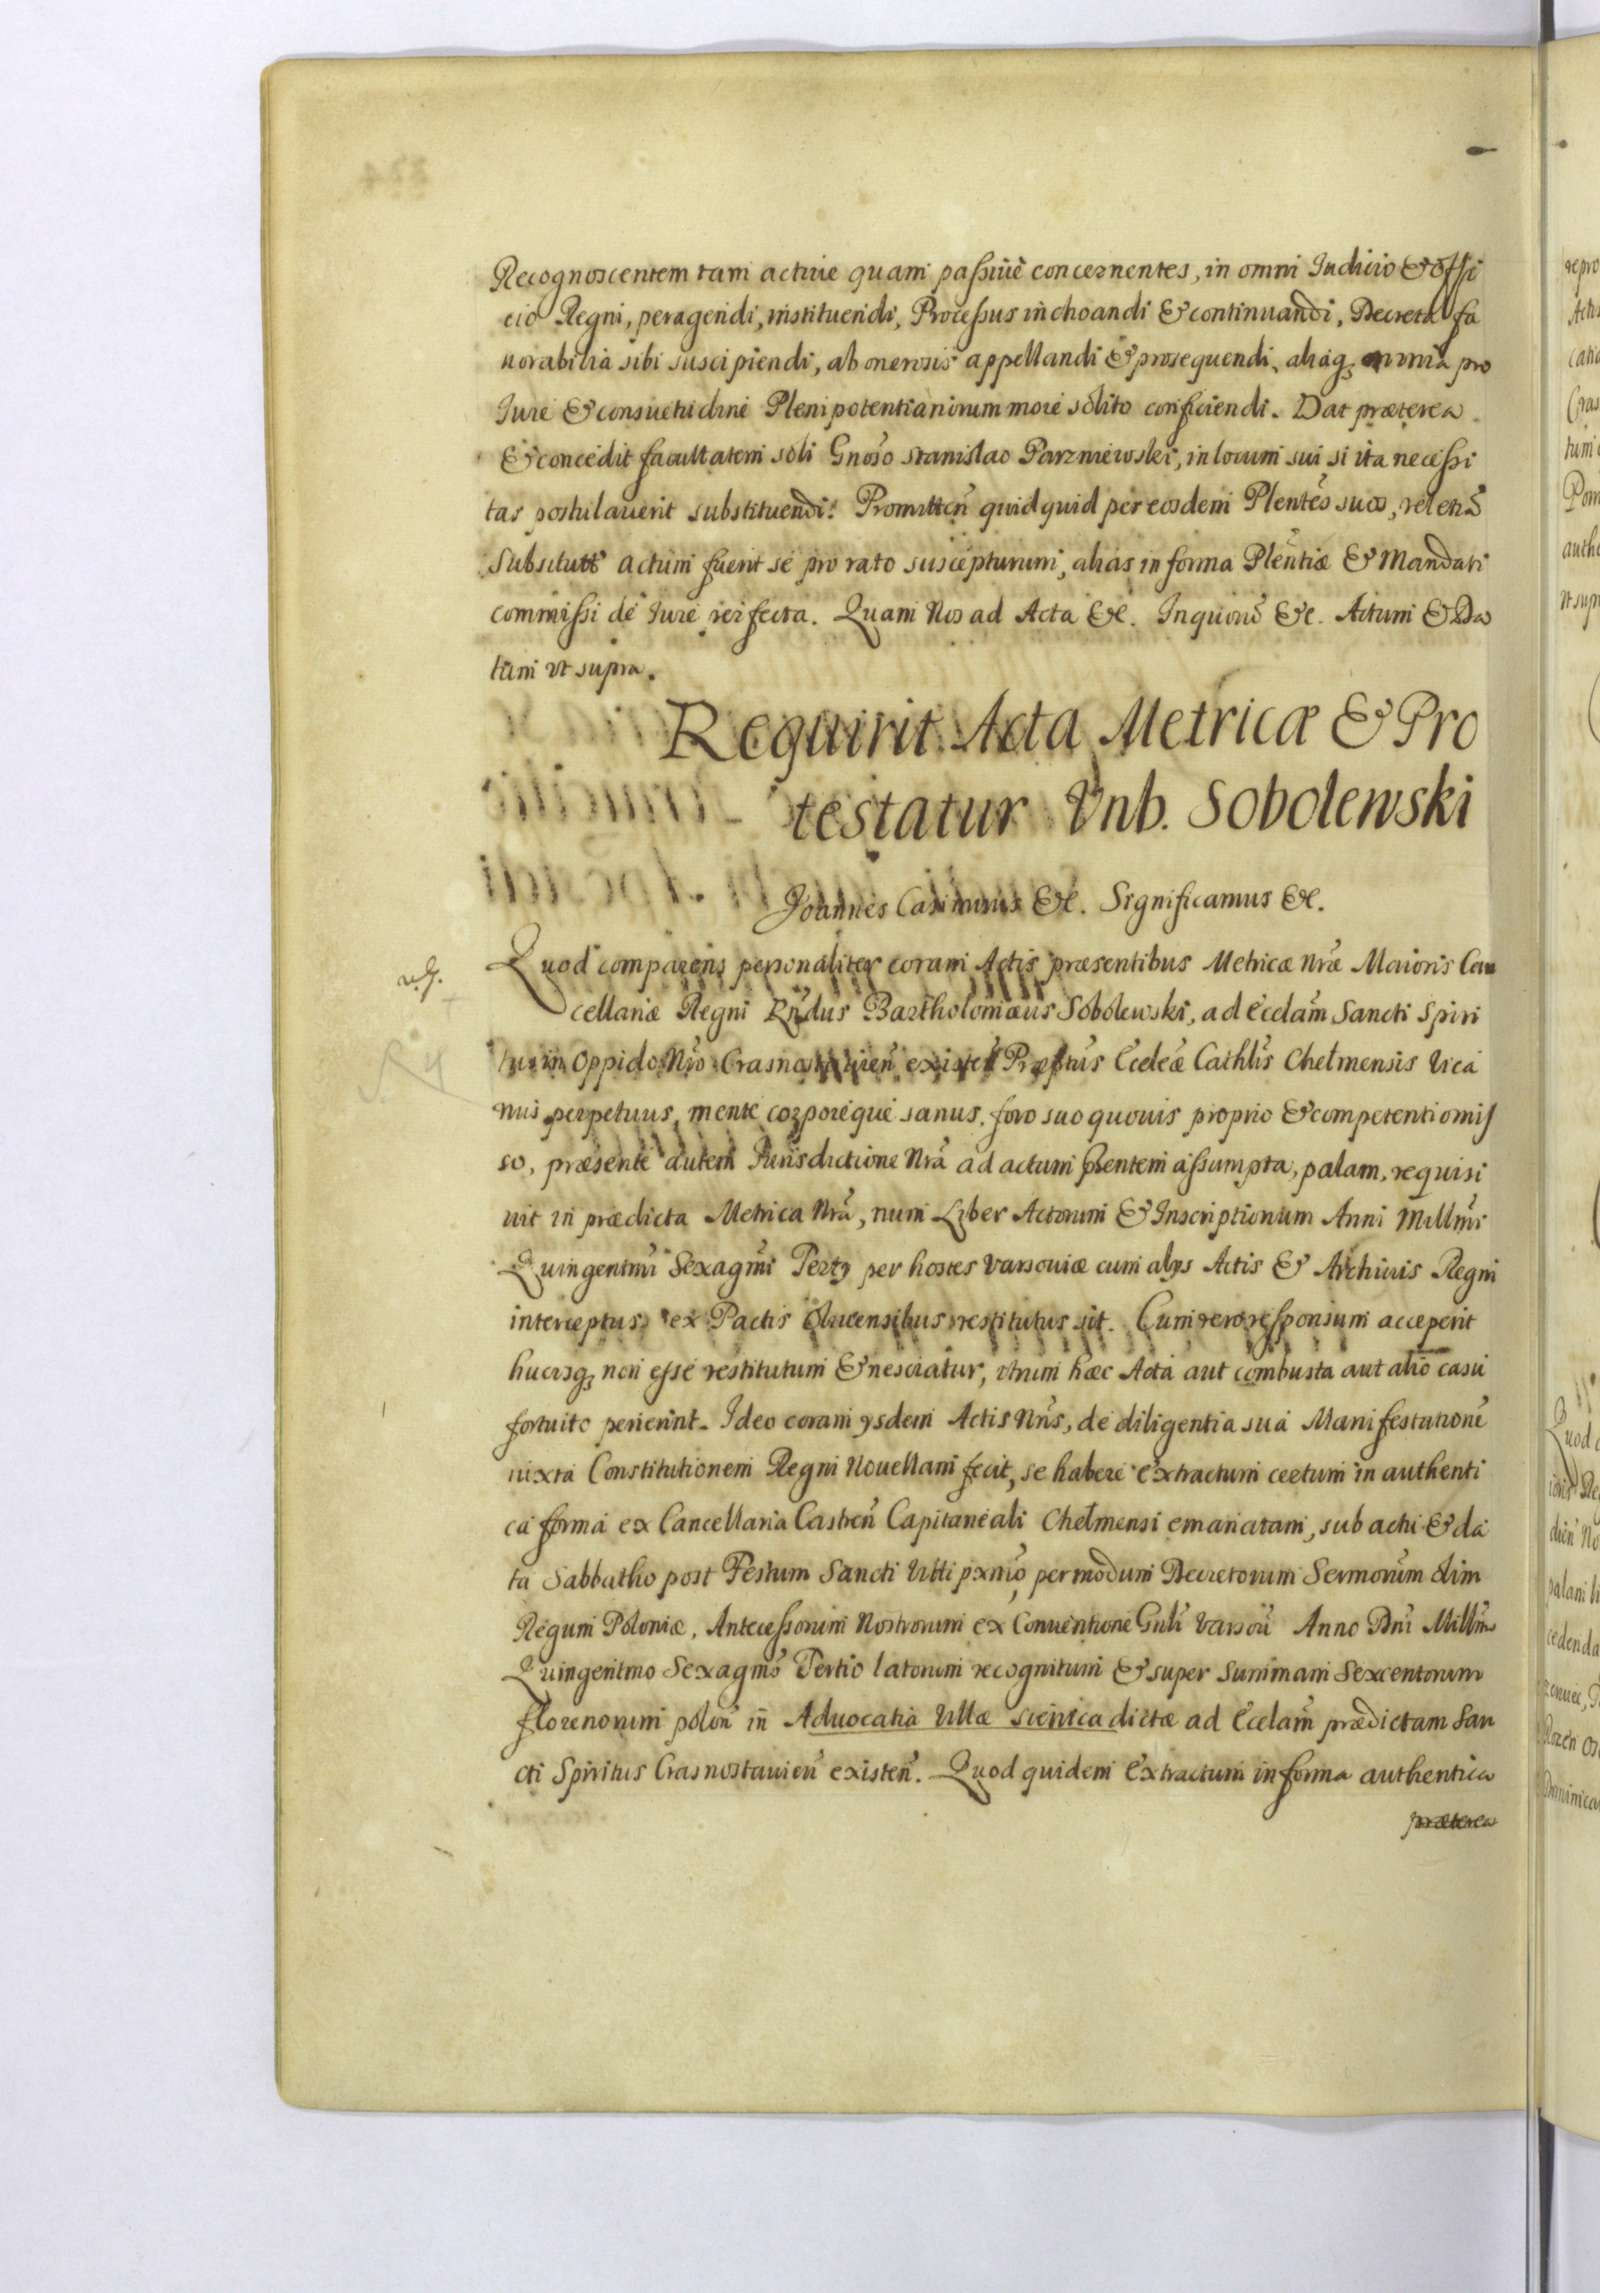 Recognoscentem tam active quam passivè concernentes, in omni Iudicio & Offi
cio Regni, peragendi, instituendi, Processus inchoandi & continuandi, Decreta fa
uorabilia sibi suscipiendi, ab onerosis appellandi & prosequendi, aliaq3 omnia pro
Iure & consuetudine Plenipotentiariorum more solito conficiendi. Dat præterea
& concedit facultatem soli Gnoso Stanislao Parzniewski, in locum sui si ita necessi
tas postulauerit substituendi. Promitten quidquid per eosdem Plentes suos, vel eius
Substitutt actum fuerit se pro rato suscepturum, alias in forma Plentiæ & Mandati
commissi de Iure perfecta. Quam Nos ad Acta &c. In quorū &c. Actum & Da
tum vt supra.
Requirit Acta Metricæ & Pro
testatur Vnb. Sobolewski
Joannes Casimirus &c. Significamus &c.
Quod comparens personaliter coram Actis præsentibus Metricæ Nræ Maioris Can
cellariæ Regni Rndus Bartholomæus Sobolewski, ad Eccłam Sancti Spiri
tus in Oppido Nro Crasnostauien existen Præptus Eccłæ Cathlis Chełmensis Vica
rius perpetuus, mente corporeque sanus, foro suo quouis proprio & competenti omis
so, præsente autem Iurisdictione Nra ad actum pñtem assumpta, palam, requisi
uit in prædicta Metrica Nra, num Liber Actorum & Inscriptionum Anni Millmi
Quingentmi Sexagmi Tertij per hostes Varsouiæ cum alijs Actis & Archiuis Regni
interceptus, ex Pactis Oliuensibus restitutus sit. Cum vero responsum acceperit
hucusq3 non esse restitutum & nesciatur, vtrum hæc Acta aut combusta aut alio casu
fortuito perierint. Ideo coram ijsdem Actis Nris, de diligentia sua Manifestatione
iuxta Constitutionem Regni Nouellam fecit, se habere extractum certum in authenti
ca forma ex Cancellaria Castren Capitaneali Chełmensi emanatam, sub actu & da
ta Sabbatho post Festum Sancti Viti pxmo, per modum Decretorum Sermorum olim
Regum Poloniæ, Antecessorum Nostrorum ex Conuentione Gnli Varsou Anno Dni Millmo
Quingentmo Sexagmo Tertio latorum recognitum & super Summam Sexcentorum
florenorum polon in Aduocatia Villæ Siennica dictæ ad Eccłam prædictam San
cti Spiritus Crasnostauien existen. Quod quidem Extractum in forma authentica
præterea